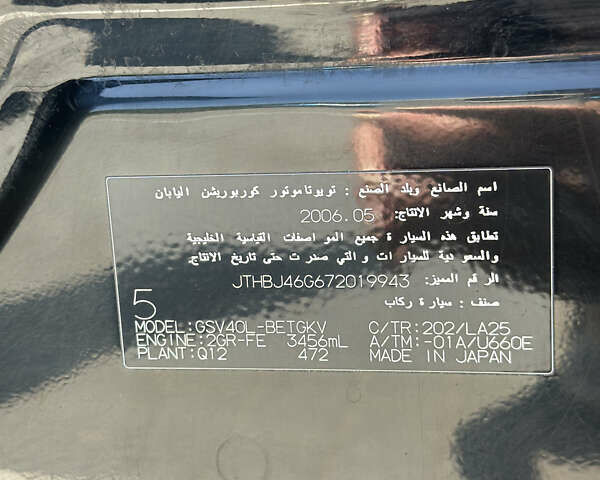 اسم الصانع وبلد الصنع : تويوتا موتور كوربوريشن اليابان
سنة وشهر الانتاج: 2006.05
تطابق هذه السيارة جميع المواصفات القياسية الخليجية
والسعودية للسيارات والتي صدرت حتى تاريخ الانتاج.
الرقم المميز: JTHBJ46G672019943
صنف : سيارة ركاب
5
MODEL:GSV40L-BETGKV C/TR:202/LA25
ENGINE:2GR-FE 3456mL A/TM:-01A/U660E
PLANT:Q12 472 MADE IN JAPAN